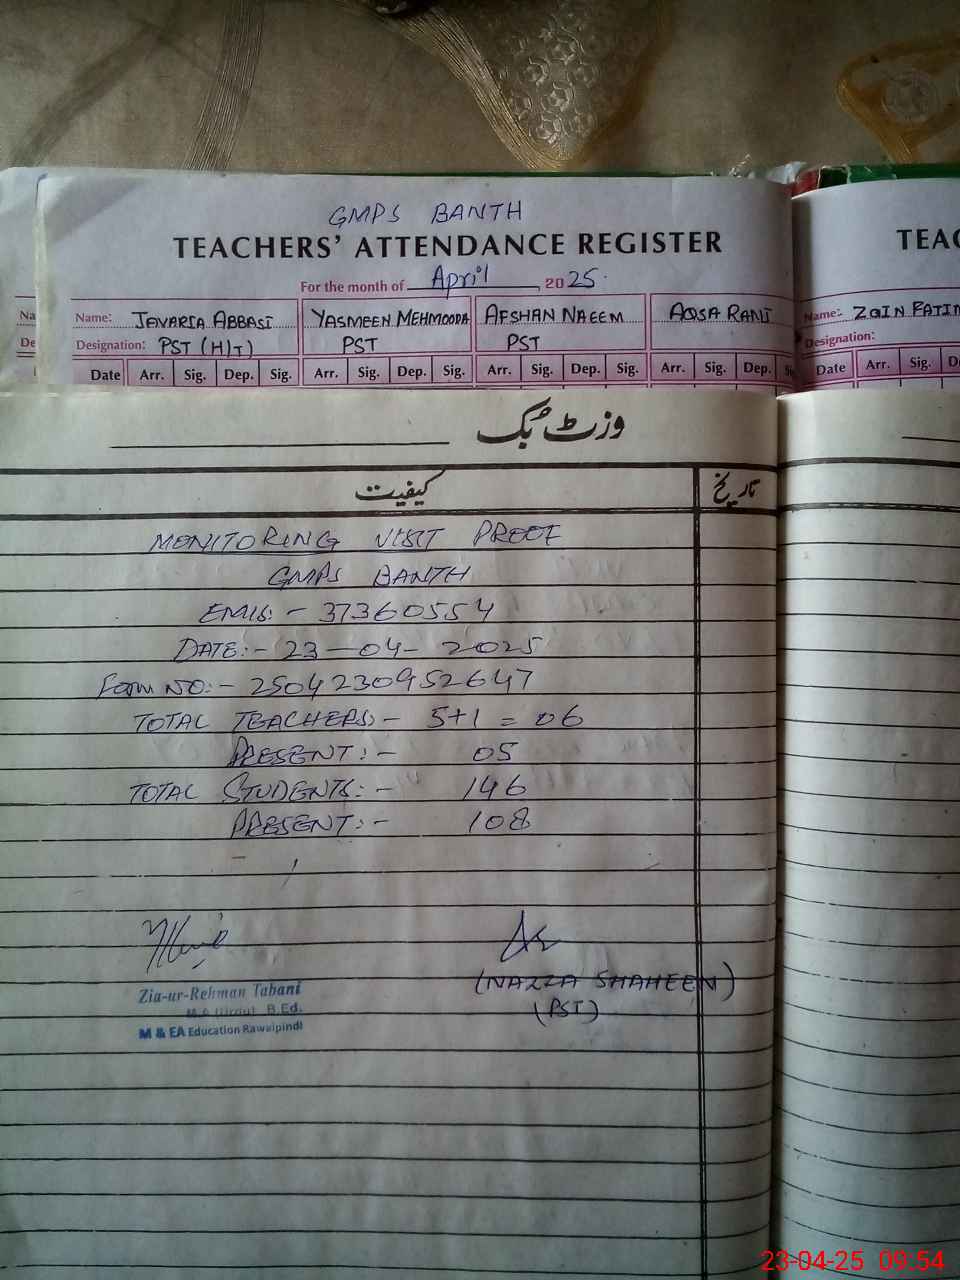 GMPS BANTH
TEACHERS' ATTENDANCE REGISTER
For the month of April, 2025.
Name: JAVARIA ABBASI YASMEEN MEHMOODA AFSHAN NAEEM AQSA RANI
Designation: PST (H)T) PST PST
Date Arr. Sig. Dep. Sig. Arr. Sig. Dep. Sig. Arr. Sig. Dep. Sig. Arr. Sig. Dep.
TEAC
Name: ZAIN FATIM
Designation:
Date Arr. Sig.
وزٹ بُک
کیفیت تاریخ
MONITORING VISIT PROOF
GMPS BANTH
EMIS:- 37360554
DATE:- 23-04-2025
Form NO:- 2504230952647
TOTAL TEACHERS:- 5+1 = 06
PRESENT:- 05
TOTAL STUDENTS:- 146
PRESENT:- 108
Zia-ur-Rehman Tabani
M.A (Urdu) B.Ed.
M & EA Education Rawalpindi
(NAZZA SHAHEEN)
(PST)
23-04-25 09:54